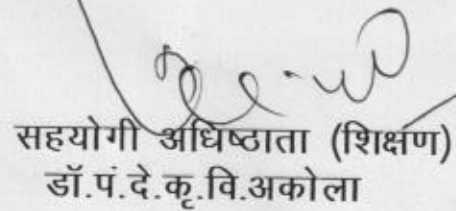 सहयोगी अधिष्ठाता (शिक्षण)
डॉ.पं.दे.कृ.वि.अकोला